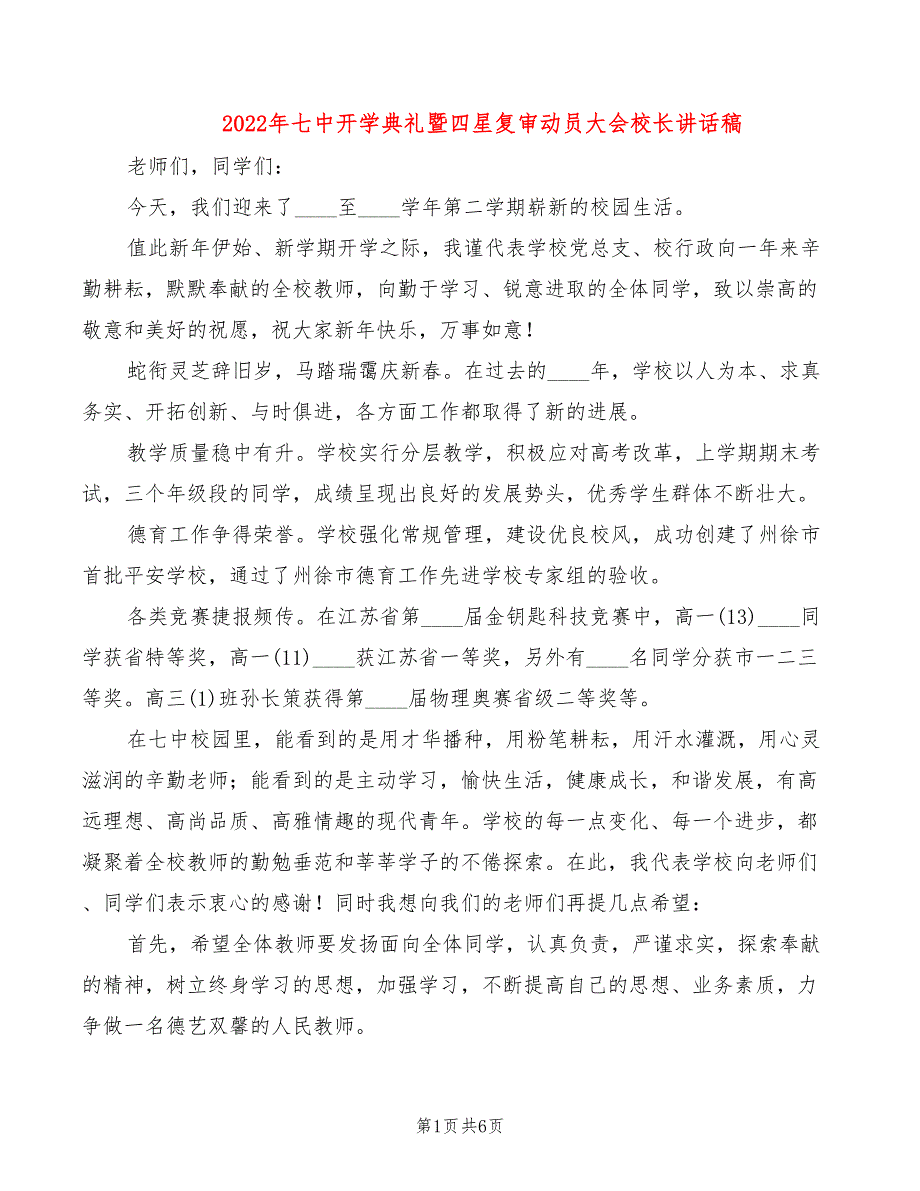 2022年七中开学典礼暨四星复审动员大会校长讲话稿
老师们，同学们：
今天，我们迎来了____至____学年第二学期崭新的校园生活。
值此新年伊始、新学期开学之际，我谨代表学校党总支、校行政向一年来辛
勤耕耘，默默奉献的全校教师，向勤于学习、锐意进取的全体同学，致以崇高的
敬意和美好的祝愿，祝大家新年快乐，万事如意！
蛇衔灵芝辞旧岁，马踏瑞霭庆新春。在过去的____年，学校以人为本、求真
务实、开拓创新、与时俱进，各方面工作都取得了新的进展。
教学质量稳中有升。学校实行分层教学，积极应对高考改革，上学期期末考
试，三个年级段的同学，成绩呈现出良好的发展势头，优秀学生群体不断壮大。
德育工作争得荣誉。学校强化常规管理，建设优良校风，成功创建了州徐市
首批平安学校，通过了州徐市德育工作先进学校专家组的验收。
各类竞赛捷报频传。在江苏省第____届金钥匙科技竞赛中，高一(13)____同
学获省特等奖，高一(11)____获江苏省一等奖，另外有____名同学分获市一二三
等奖。高三(1)班孙长策获得第____届物理奥赛省级二等奖等。
在七中校园里，能看到的是用才华播种，用粉笔耕耘，用汗水灌溉，用心灵
滋润的辛勤老师；能看到的是主动学习，愉快生活，健康成长，和谐发展，有高
远理想、高尚品质、高雅情趣的现代青年。学校的每一点变化、每一个进步，都
凝聚着全校教师的勤勉垂范和莘莘学子的不倦探索。在此，我代表学校向老师们
、同学们表示衷心的感谢！同时我想向我们的老师们再提几点希望：
首先，希望全体教师要发扬面向全体同学，认真负责，严谨求实，探索奉献
的精神，树立终身学习的思想，加强学习，不断提高自己的思想、业务素质，力
争做一名德艺双馨的人民教师。
第1页 共6页